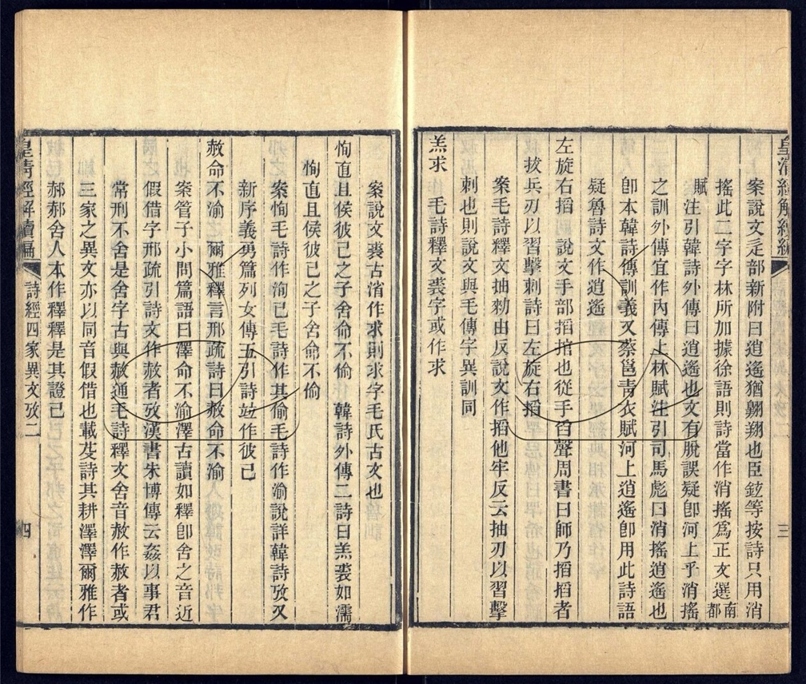 皇清經解續編
三
案說文辵部新附曰逍遙猶翱翔也臣鉉等按詩只用消
搖此二字字林所加據徐語則詩當作消搖爲正文選南都
賦注引韓詩外傳曰逍遙也文有脫誤疑卽河上乎消搖
之訓外傳宜作內傳上林賦注引司馬彪曰消搖逍遙也
卽本韓詩傳訓義又蔡邕青衣賦河上逍遙卽用此詩語
疑魯詩文作逍遙
左旋右搯 說文手部搯捾也從手舀聲周書曰師乃搯搯者
拔兵刃以習擊刺詩曰左旋右搯
案毛詩釋文抽勑由反說文作搯他牢反云抽刃以習擊
刺也則說文與毛傳字異訓同
羔求 毛詩釋文裘字或作求
案說文裘古消作求則求字毛氏古文也
恂直且侯彼己之子舍命不偷 韓詩外傳二詩曰羔裘如濡
恂直且侯彼己之子舍命不偷
案恂毛詩作洵己毛詩作其偷毛詩作渝說詳韓詩攷又
新序義勇篇列女傳五引詩竝作彼己
赦命不渝 爾雅釋言邢疏詩曰赦命不渝
案管子小問篇語曰澤命不渝澤古讀如釋卽舍之音近
假借字邢疏引詩文作赦者攷漢書朱博傳云姦以事君
常刑不舍是舍字古與赦通毛詩釋文舍音赦作赦者或
三家之異文亦以同音假借也載芟詩其耕澤澤爾雅作
郝郝舍人本作釋釋是其證已
皇清經解續編
詩經四家異文攷二
四